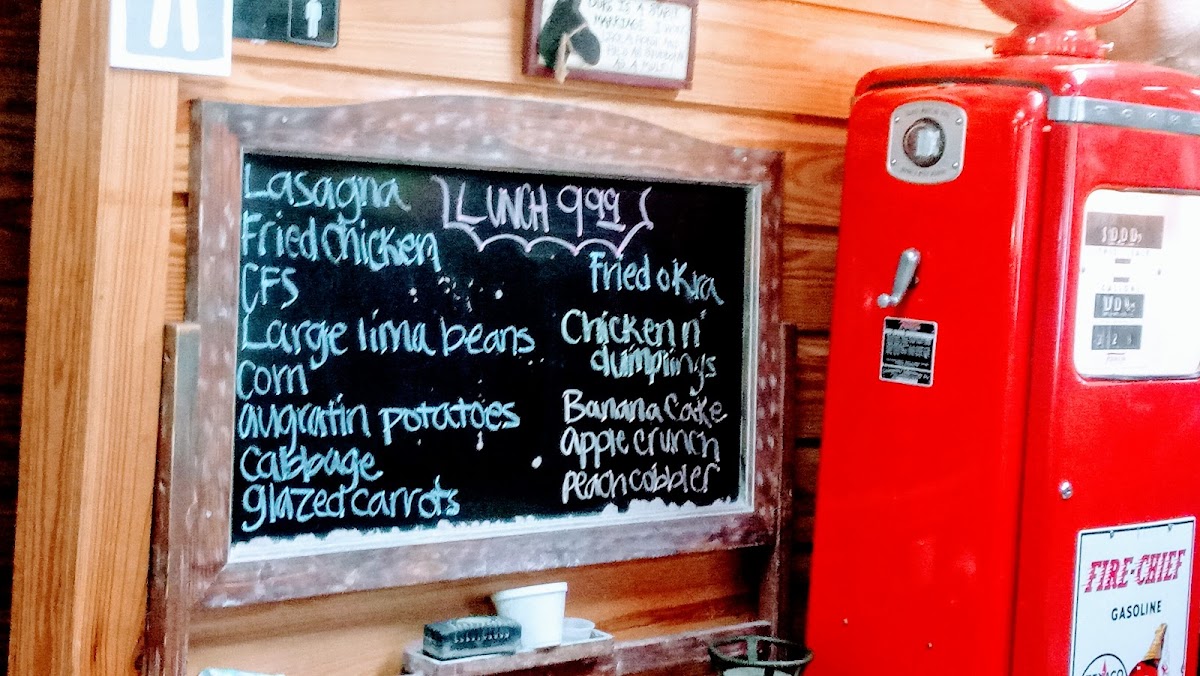 Lasagna
Fried chicken
CFS
Large lima beans
Corn
augratin potatoes
Cabbage
glazed carrots
LUNCH 9.99
Fried okra
Chicken n'
dumplings
Banana Cake
apple crunch
peach cobbler
FIRE-CHIEF
GASOLINE
TEXACO